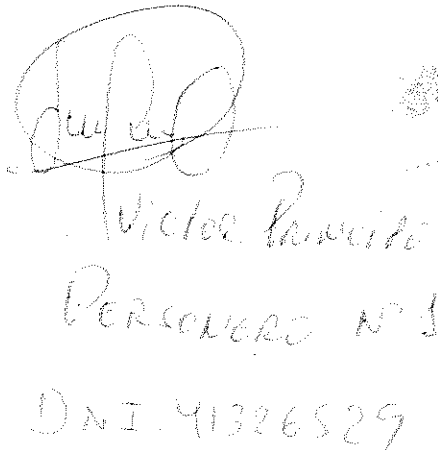 Victor Principe
PERSONERO Nº 1
DNI. 41326529